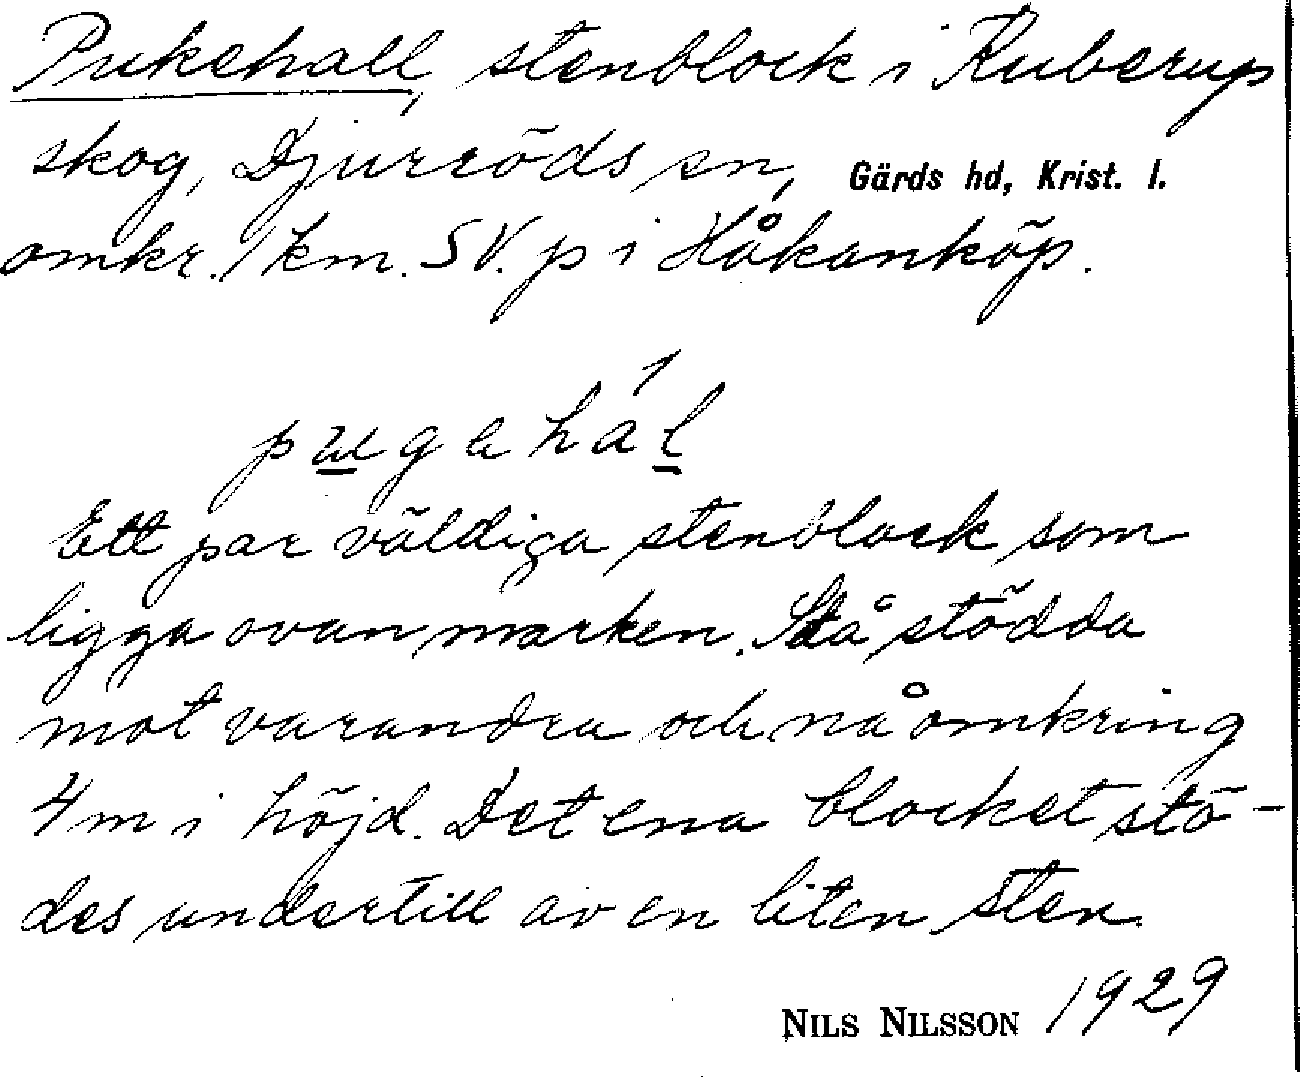 Pukehall, stenblock i Ruberups
skog, Djurröds sn, Gärds hd, Krist. l.
omkr. 1 km. SV. p i Håkanköp.
pugehál
Ett par väldiga stenblock som
ligga ovan marken. Stå stödda
mot varandra och nå omkring
4 m i höjd. Det ena blocket stö-
des undertill av en liten sten.
NILS NILSSON 1929